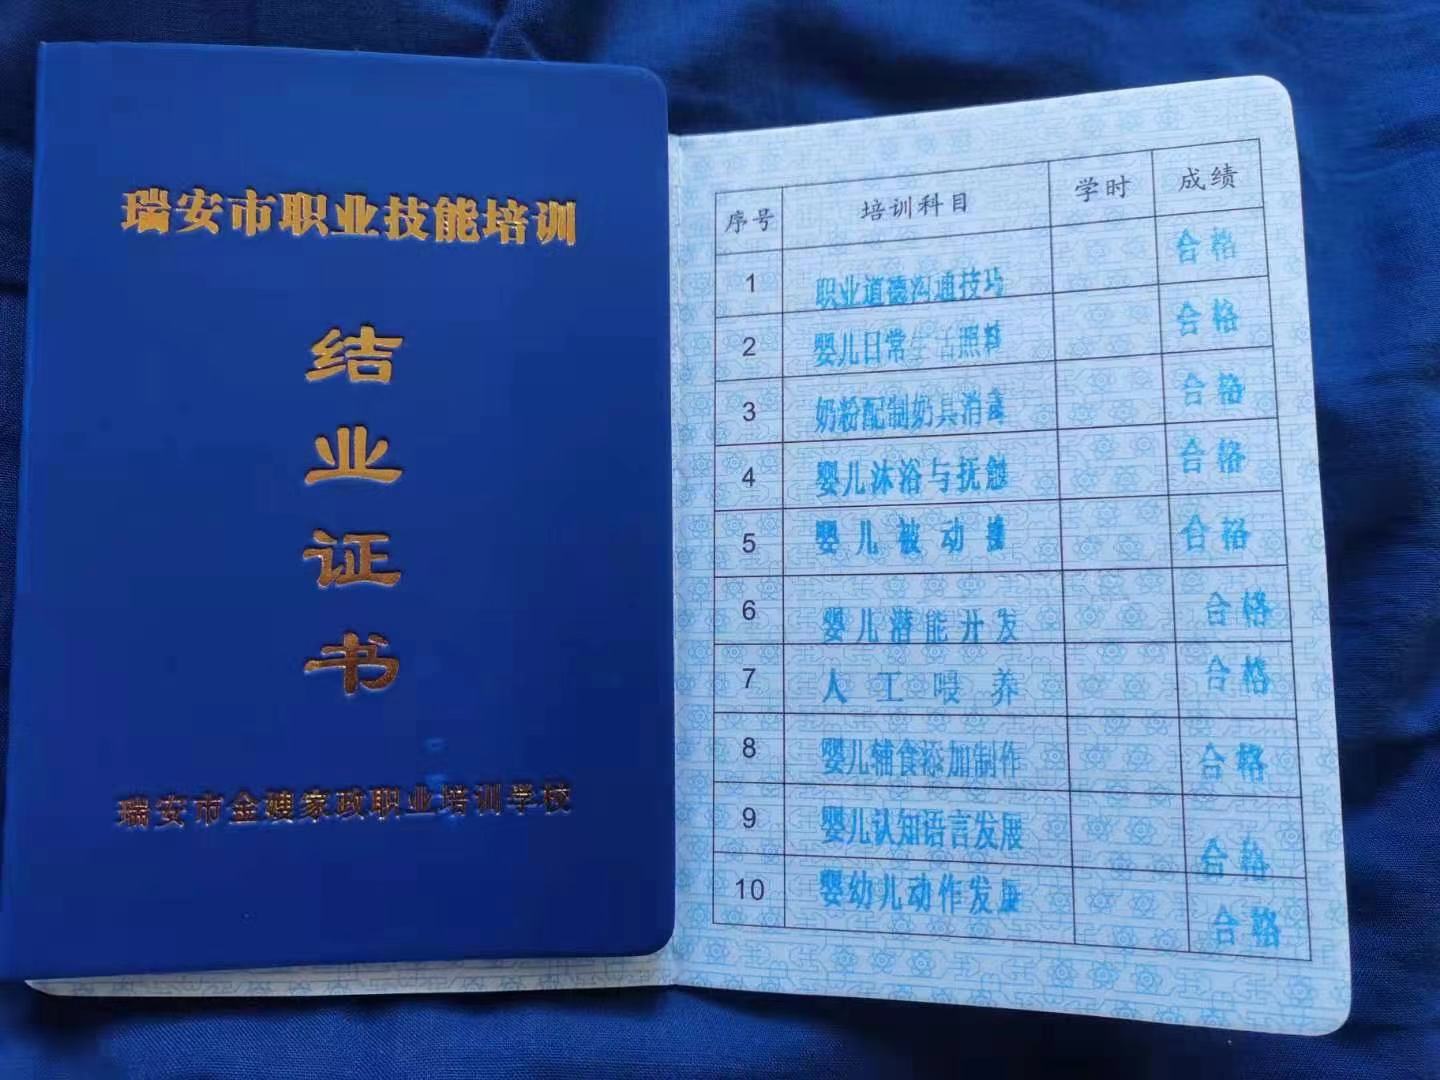 瑞安市职业技能培训
结
业
证
书
瑞安市金嫂家政职业培训学校
序号 培训科目 学时 成绩
1 职业道德沟通技巧 合格
2 婴儿日常生活照料 合格
3 奶粉配制奶具消毒 合格
4 婴儿沐浴与抚触 合格
5 婴儿被动操 合格
6 婴儿潜能开发 合格
7 人工喂养 合格
8 婴儿辅食添加制作 合格
9 婴儿认知语言发展 合格
10 婴幼儿动作发展 合格